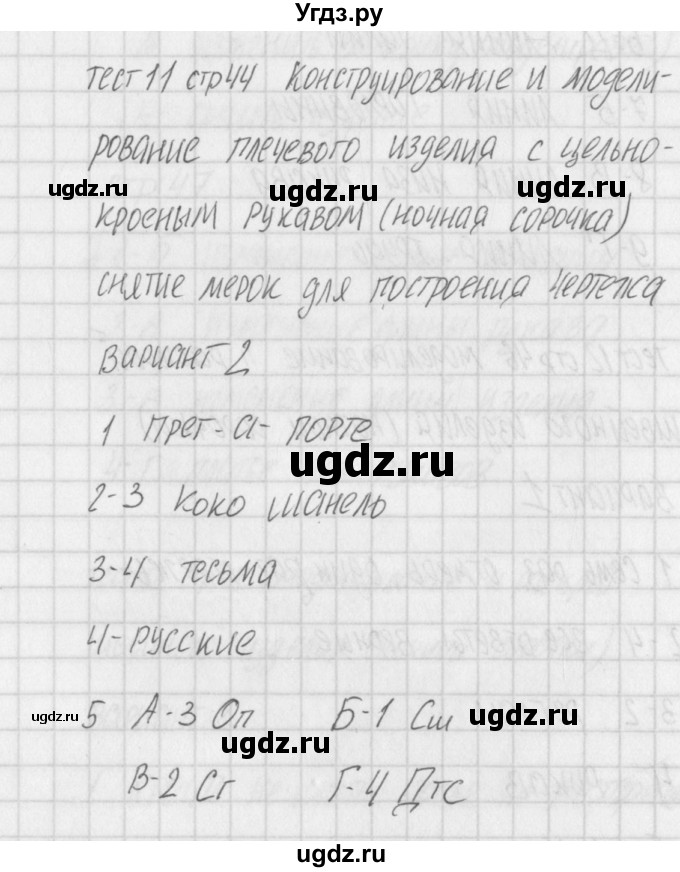 Угдз.ру
тест 11 стр 44 Конструирование и модели-
рование плечевого изделия с цельно-
кроеным рукавом (ночная сорочка)
снятие мерок для построения чертежа
Вариант 2
1 Прет-а-порте
2-3 Коко Шанель
3-4 тесьма
4-русские
5 А-3 Оп Б-1 Сш
В-2 Сг Г-4 Дтс
ugdz.ru
ugdz.ru
ugdz.ru
ugdz.ru
ugdz.ru
ugdz.ru
ugdz.ru
ugdz.ru
ugdz.ru